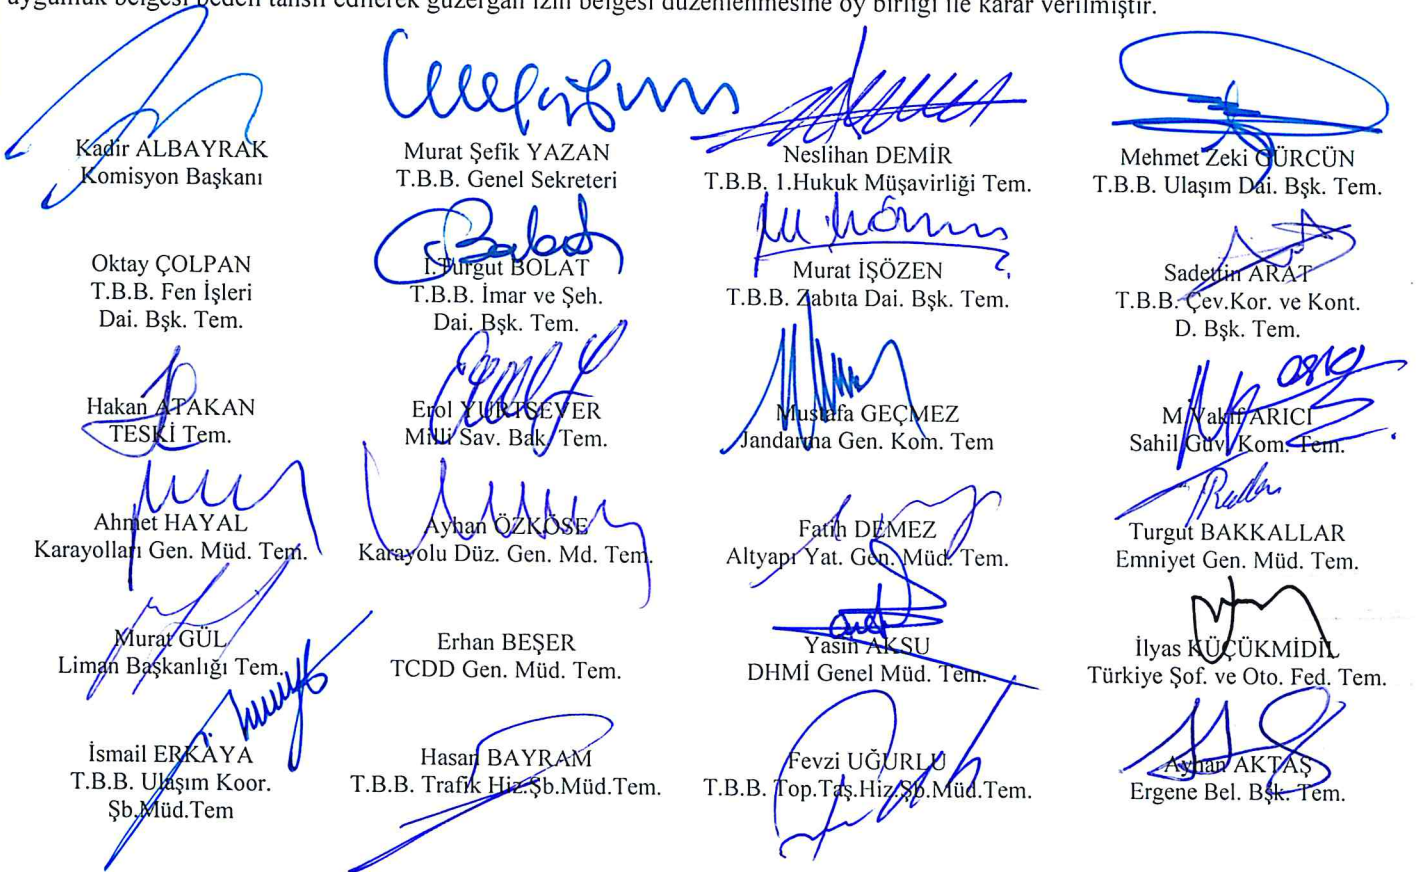 uygunluk belgesi bedeli tahsil edilerek güzergah izin belgesi düzenlenmesine oy birliği ile karar verilmiştir.
Kadir ALBAYRAK
Komisyon Başkanı
Murat Şefik YAZAN
T.B.B. Genel Sekreteri
Neslihan DEMİR
T.B.B. 1.Hukuk Müşavirliği Tem.
Mehmet Zeki GÜRCÜN
T.B.B. Ulaşım Dai. Bşk. Tem.
Oktay ÇOLPAN
T.B.B. Fen İşleri
Dai. Bşk. Tem.
İ.Turgut BOLAT
T.B.B. İmar ve Şeh.
Dai. Bşk. Tem.
Murat İŞÖZEN
T.B.B. Zabıta Dai. Bşk. Tem.
Sadettin ARAT
T.B.B. Çev.Kor. ve Kont.
D. Bşk. Tem.
Hakan ATAKAN
TESKİ Tem.
Erol YURTSEVER
Milli Sav. Bak. Tem.
Mustafa GEÇMEZ
Jandarma Gen. Kom. Tem
M.Vakıf ARICI
Sahil Güv. Kom. Tem.
Ahmet HAYAL
Karayolları Gen. Müd. Tem.
Ayhan ÖZKÖSE
Karayolu Düz. Gen. Md. Tem.
Fatih DEMEZ
Altyapı Yat. Gen. Müd. Tem.
Turgut BAKKALLAR
Emniyet Gen. Müd. Tem.
Murat GÜL
Liman Başkanlığı Tem.
Erhan BEŞER
TCDD Gen. Müd. Tem.
Yasin AKSU
DHMİ Genel Müd. Tem.
İlyas KÜÇÜKMİDİL
Türkiye Şof. ve Oto. Fed. Tem.
İsmail ERKAYA
T.B.B. Ulaşım Koor.
Şb.Müd.Tem
Hasan BAYRAM
T.B.B. Trafik Hiz.Şb.Müd.Tem.
Fevzi UĞURLU
T.B.B. Top.Taş.Hiz.Şb.Müd.Tem.
Ayhan AKTAŞ
Ergene Bel. Bşk. Tem.